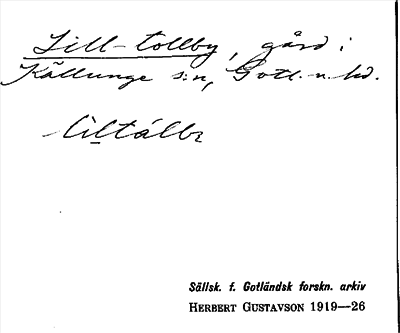 Lill-tollby, gård i
Källunge s:n, Gotl. n. hd.
Sällsk. f. Gotländsk forskn. arkiv
HERBERT GUSTAVSON 1919—26